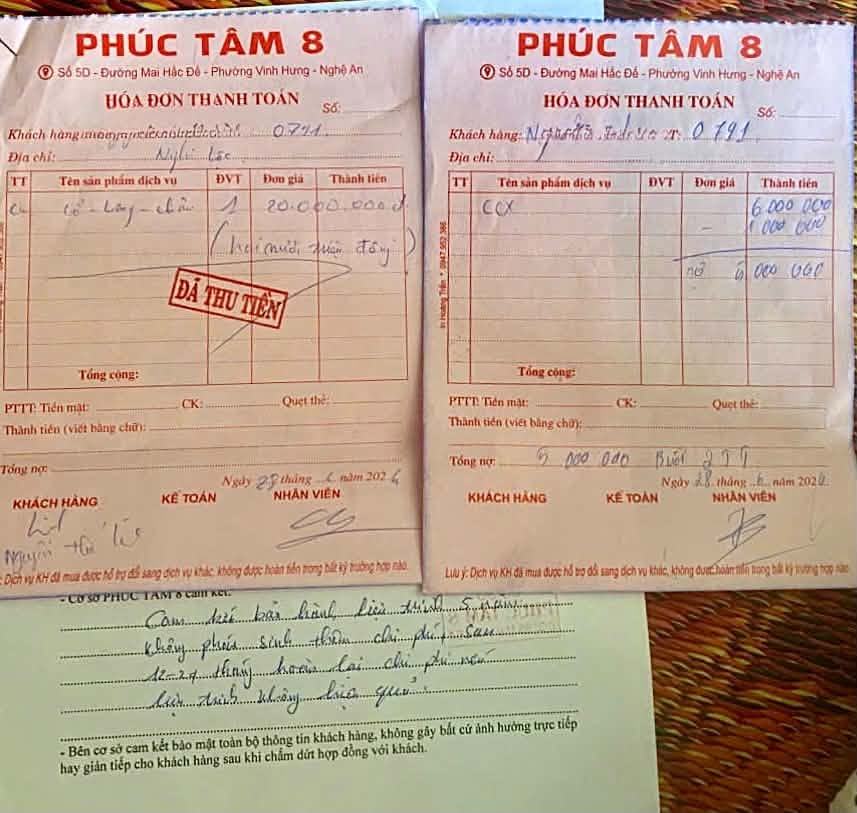 PHÚC TÂM 8
Số 5D - Đường Mai Hắc Đế - Phường Vinh Hưng - Nghệ An
HÓA ĐƠN THANH TOÁN
Số:
Khách hàng: 0791
Địa chỉ: Nghi Lộc
TT Tên sản phẩm dịch vụ ĐVT Đơn giá Thành tiền
Cổ - Lưng - chân 1 20.000.000đ
(hai mươi triệu đồng)
ĐÃ THU TIỀN
Tổng cộng:
PTTT: Tiền mặt: CK: Quẹt thẻ:
Thành tiền (viết bằng chữ):
Tổng nợ:
Ngày 28 tháng 6 năm 2024
KHÁCH HÀNG KẾ TOÁN NHÂN VIÊN
Nguyễn thị
Dịch vụ KH đã mua được hỗ trợ đổi sang dịch vụ khác, không được hoàn tiền trong bất kỳ trường hợp nào.
PHÚC TÂM 8
Số 5D - Đường Mai Hắc Đế - Phường Vinh Hưng - Nghệ An
HÓA ĐƠN THANH TOÁN
Số:
Khách hàng: 0791
Địa chỉ:
TT Tên sản phẩm dịch vụ ĐVT Đơn giá Thành tiền
CCX 6 000 000
- 1 000 000
nợ 5 000 000
In Hoàng Trần * 0947 952 386
Tổng cộng:
PTTT: Tiền mặt: CK: Quẹt thẻ:
Thành tiền (viết bằng chữ):
Tổng nợ: 5 000 000 Buổi
Ngày 28 tháng 6 năm 2024
KHÁCH HÀNG KẾ TOÁN NHÂN VIÊN
Lưu ý: Dịch vụ KH đã mua được hỗ trợ đổi sang dịch vụ khác, không được hoàn tiền trong bất kỳ trường hợp nào.
- Cơ sở PHÚC TÂM 8 cam kết:
Cam kết bảo hành liệu trình 5 năm
không phát sinh thêm chi phí sau
12-24 tháng hoàn lại chi phí nếu
liệu trình không hiệu quả.
PHÚC TÂM 8
- Bên cơ sở cam kết bảo mật toàn bộ thông tin khách hàng, không gây bất cứ ảnh hưởng trực tiếp
hay gián tiếp cho khách hàng sau khi chấm dứt hợp đồng với khách.